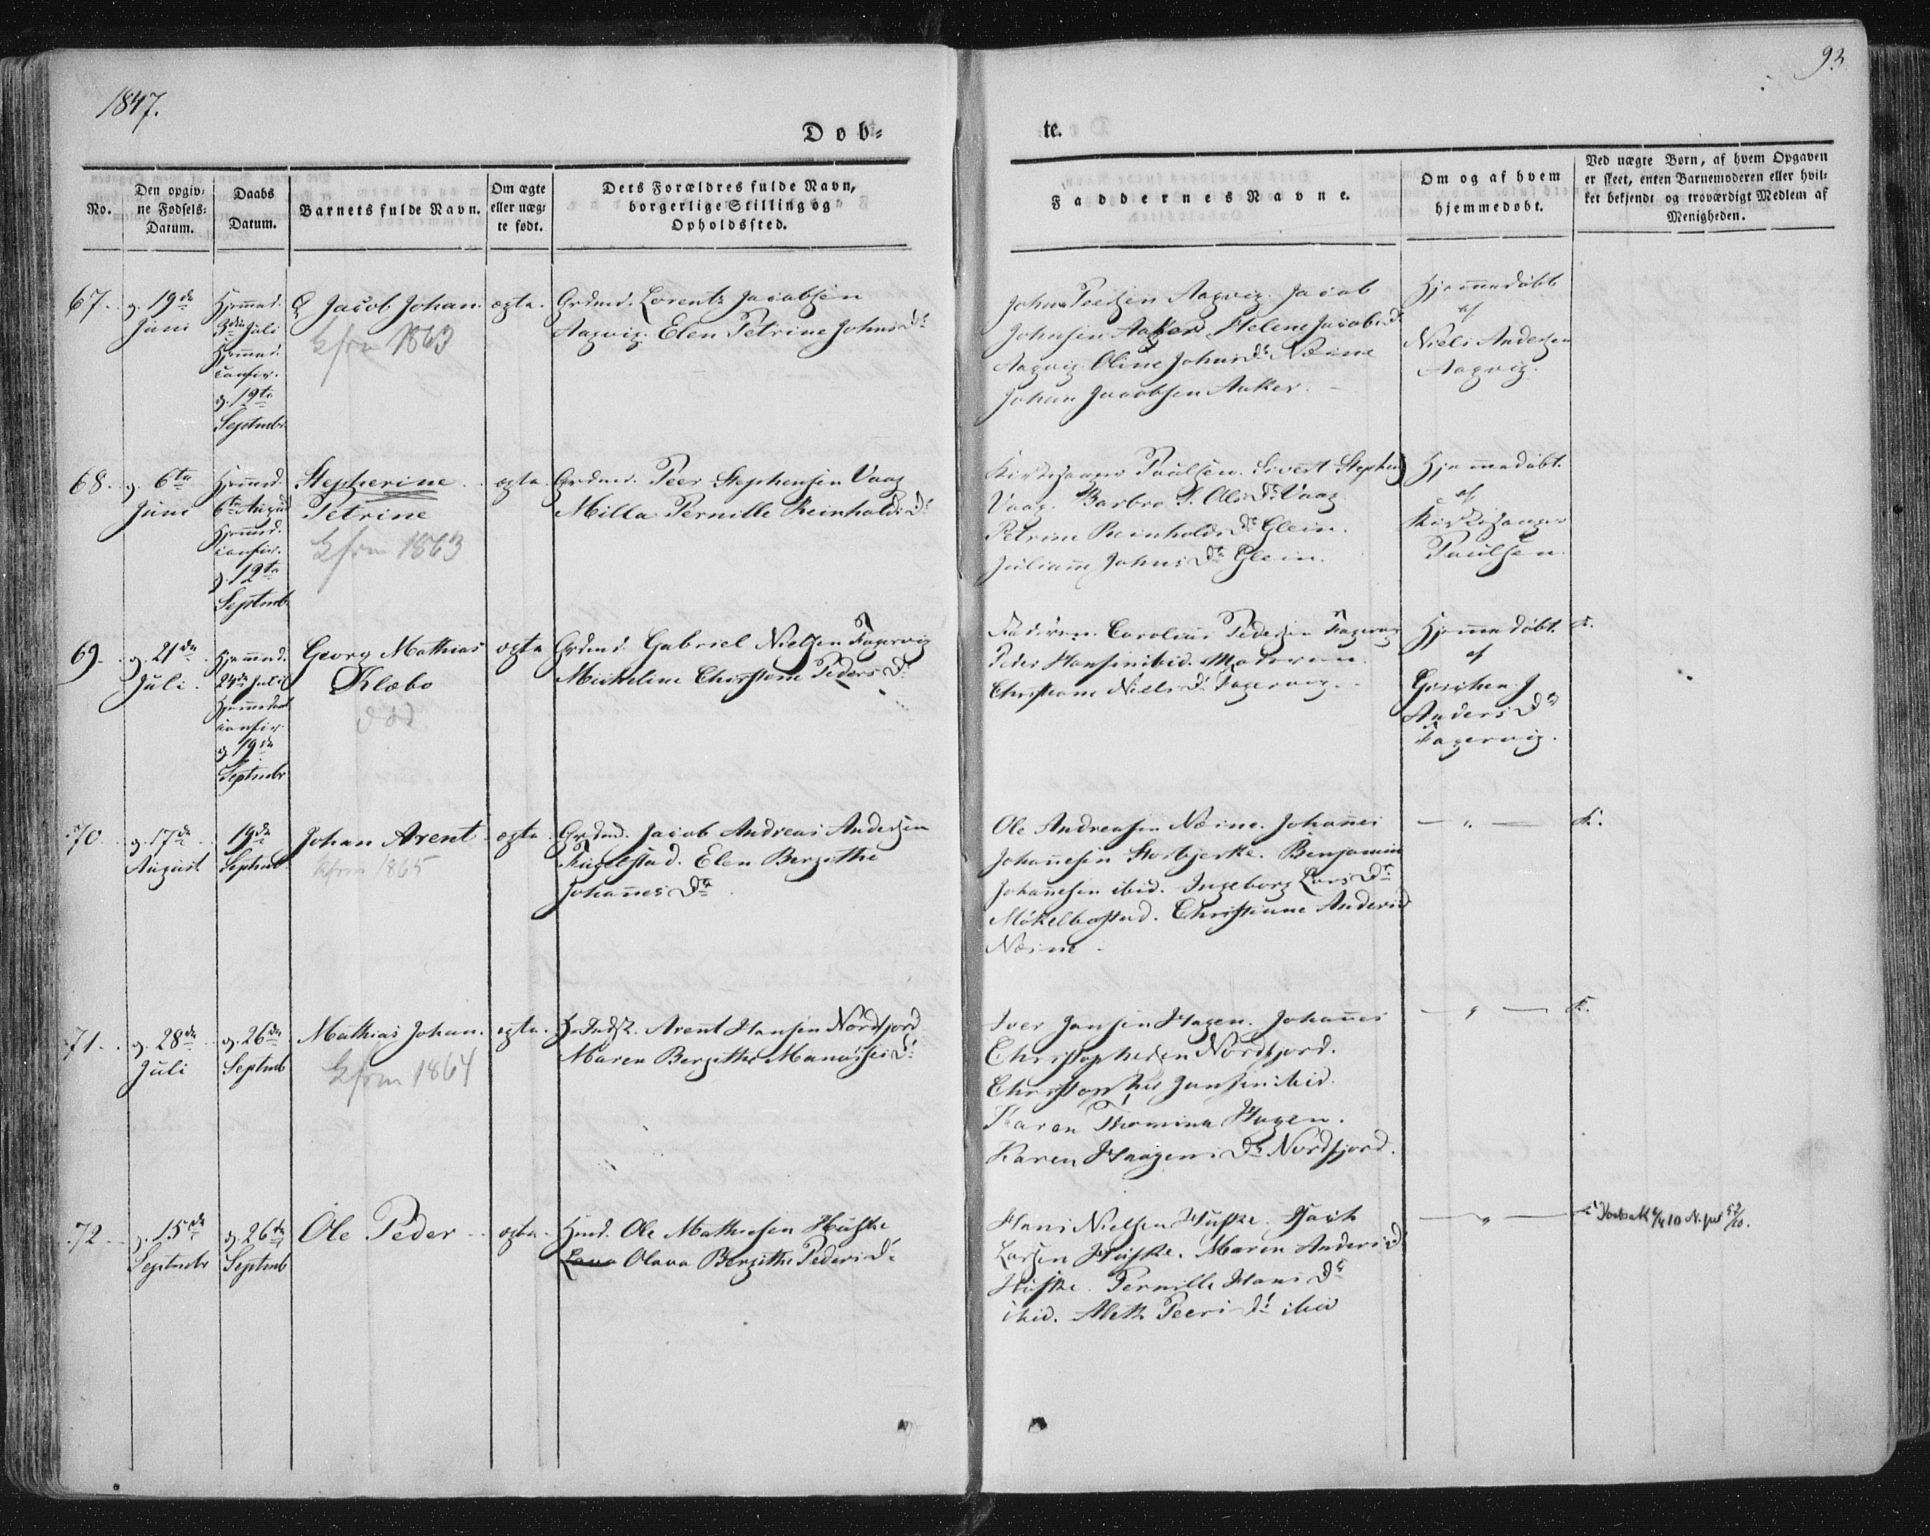 1847.
93
Døb-
te.
No.
Den opgiv-
ne Fødsels-
Datum.
Daabs
Datum.
Barnets fulde Navn.
Om ægte
eller uæg-
te født.
Dets Forældres fulde Navn,
borgerlige Stilling og
Opholdssted.
Faddernes Navne.
Om og af hvem
hjemmedøbt.
Ved uægte Børn, af hvem Opgaven
er skeet, enten Barnemoderen eller hvil-
ket bekjendt og troværdigt Medlem af
Menigheden.
67.
d. 19de
Juni
Hjemmed.
3die Juli
Hjemmed.
confir.
d. 12te
Septembr
Jacob Johan.
Kfrm 1863
ægte.
Grdmd. Lorentz Jacobsen
Aagvig. Elen Petrine Johns Dr
Johan Aagvig. Jacob
Johnsen Aaker Helene Jacobsd
Aagvig. Oline Johns Dr Næsne
Johan Jacobsen Aaker.
Hjemmedøbt
af
Niels Andersen
Aagvig.
68.
d. 6te
Juni
Hjemmed.
6te August
Hjemmd.
confir.
d. 12te
Septemb
Stepherine
Petrine
Kfrm 1863
ægte
Grdmd. Peer Stephensen Vaag
Milla Pernille Reinholds Dr
Kirkesanger Paulsen. Sivert Stephens
Vaag. Barbro P. Ols Dr Vaag
Petrine Reinholds Dr Glein.
Juliane Johns Dr Glein.
Hjemmedøbt.
af
Kirkesanger
Paulsen.
69.
d. 21de
Juli.
Hjemmed.
24de Juli
Hjemmedøbt
confir.
d. 19de
Septembr
Georg Mathias
Klæbo
død
ægte
Grdmd. Gabriel Nielsen Fagervig
Micheline Christene Peders Dr
Faderen. Carolius Pedersen Fagervig
Peder Hansen ibid. Moderen.
Christiane Niels Dr Fagervig.
Hjemmedøbt.
af
Gurichen J
Anders Dr
Fagervig.
K.
70.
d. 17de
August
19de
Septemb
Johan Arent.
Kfrm 1865
ægte.
Grdmd. Jacob Andreas Andersen
Elen Bergithe
Johannes Dr
Ole Andreasen Næsne. Johannes
Johannesen Storbjerke. Benjamin
Johannesen ibid. Ingeborg Lars Dr
Møkelbostad. Christianne Anders D
Næsne.
K.
71.
d. 28de
Juli
d. 26de
Septemb
Mathias Johan.
Kfrm 1864
ægte.
Arent Hansen Nordfjord
Maren Bergithe Manasses Dr
Iver Jansen Hagen. Johannes
Christophersen Nordfjord.
Christopher Jansen ibid.
Karen Thomina Hagen.
Karen Haagens Dr Nordfjord.
K.
72.
d. 15de
Septembr
d. 26de
Septemb
Ole Peder
ægte.
Huusmd. Ole Mathiesen Huske
Olava Bergithe Peders Dr
Hans Nielsen Huske.
Larsen Huske. Maren Anders D
Huske. Pernille Hans Dr
ibid. Aleth Peers Dr ibid